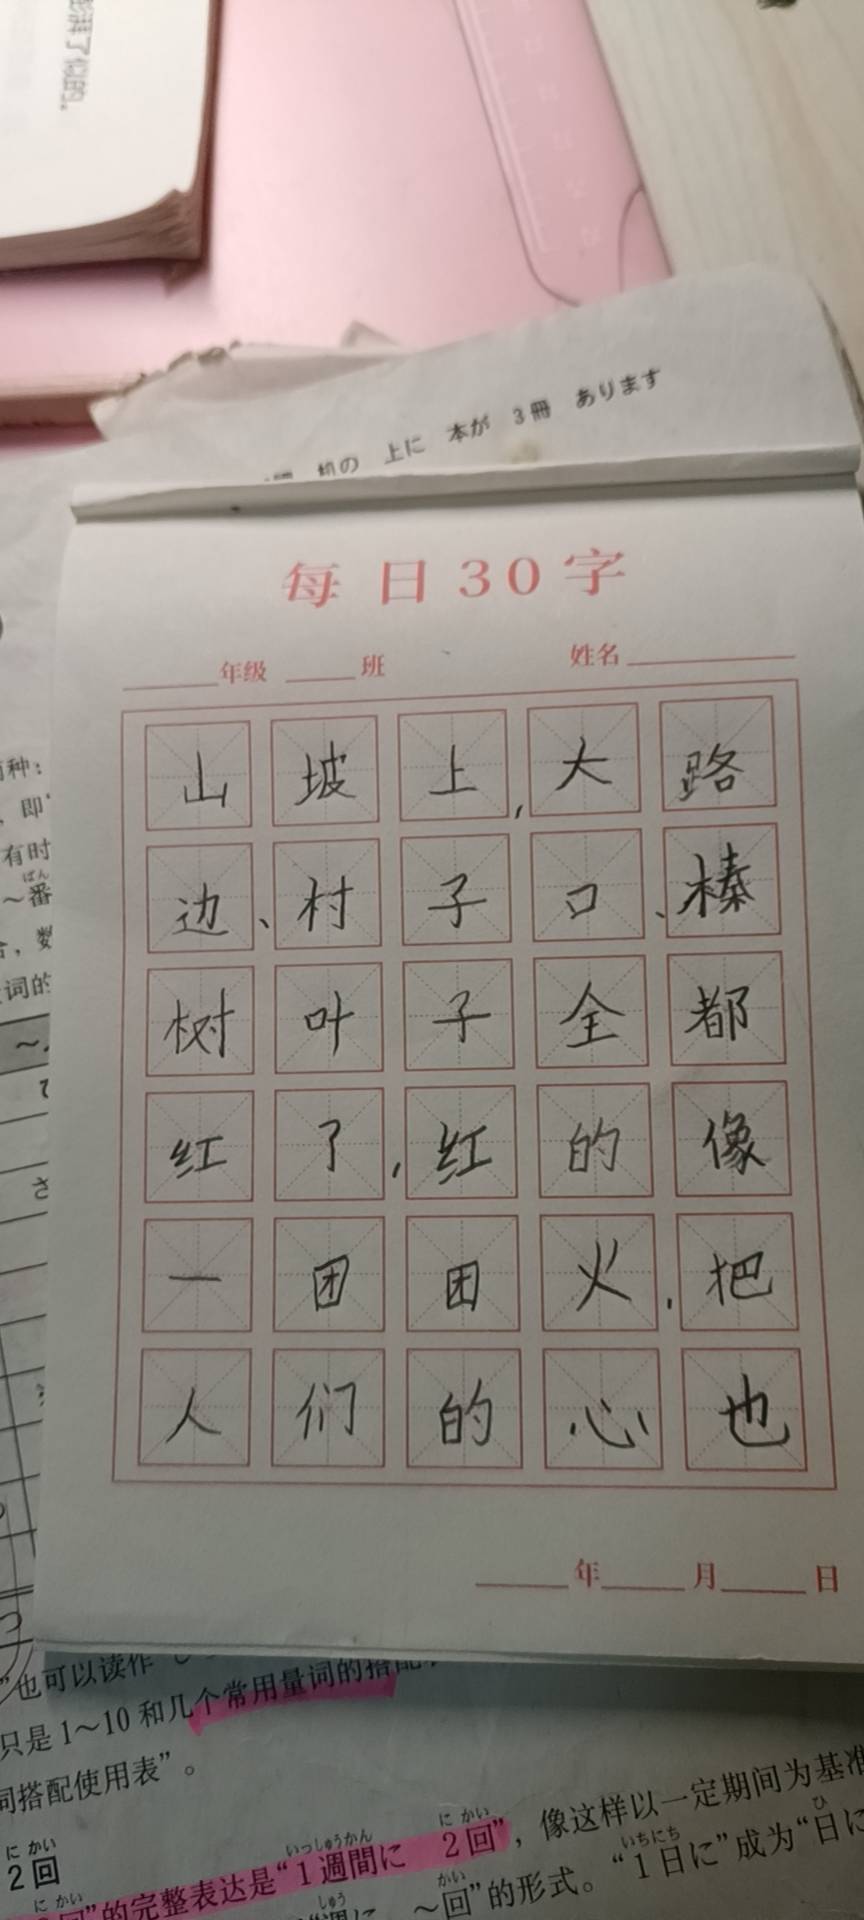 了似的。
机の 上に 本が 3冊 あります
每日30字
年级 班 姓名
山坡上，大路
边、村子口、榛
树叶子全都
红了，红的像
一团团火，把
人们的心也
年 月 日
种：
，即
有时
～番
ばん
，数
词的
～
さ
”也可以读作“
只是1～10和几个常用量词的搭配
词搭配使用表”。
に かい
2回
に かい
回”的完整表达是“1週間に 2回”，像这样以一定期间为基准
いっしゅうかん に かい
しゅう かい いちにち ひ
週に ～回”的形式。“1日に”成为“日に